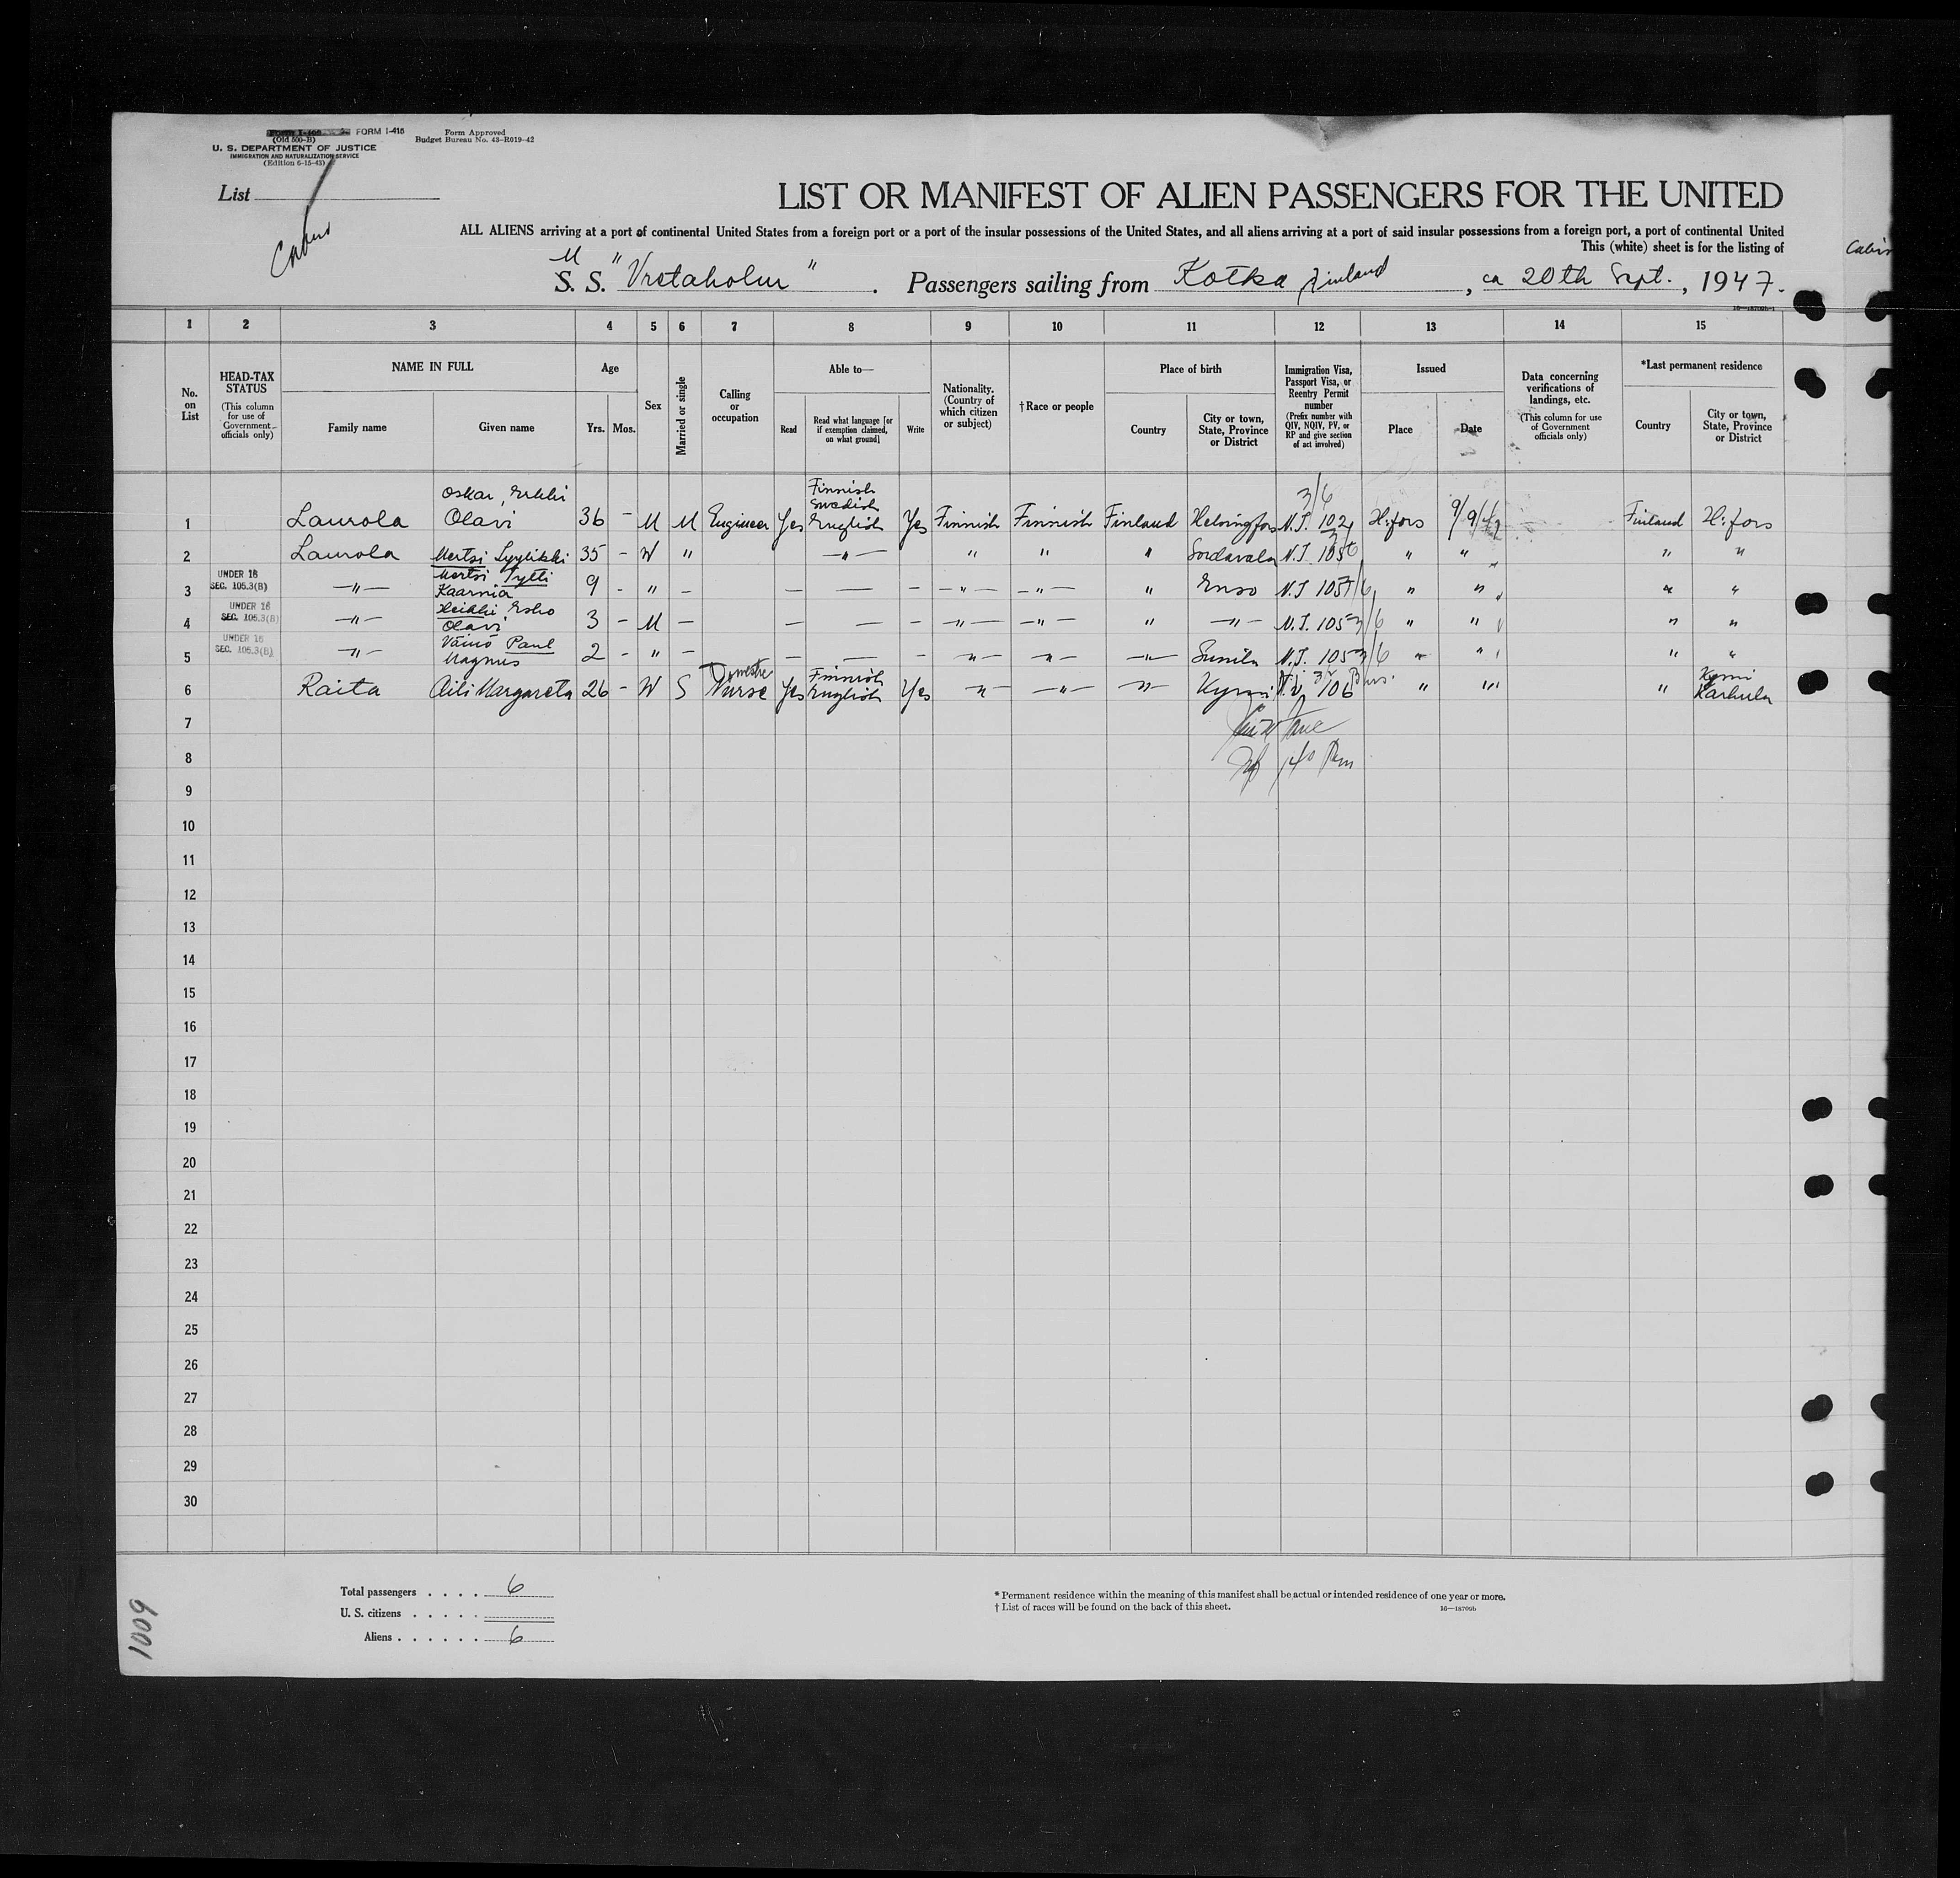 FORM I-415
(Old 500-B)
U. S. DEPARTMENT OF JUSTICE
IMMIGRATION AND NATURALIZATION SERVICE
(Edition 6-15-43)
Form Approved
Budget Bureau No. 43-R019-42
List
Cabin
LIST OR MANIFEST OF ALIEN PASSENGERS FOR THE UNITED
ALL ALIENS arriving at a port of continental United States from a foreign port or a port of the insular possessions of the United States, and all aliens arriving at a port of said insular possessions from a foreign port, a port of continental United
This (white) sheet is for the listing of
Cabin
M
S. S. "Vretaholm". Passengers sailing from Kotka Finland, ca 20th Sept., 1947.
1 2 3 4 5 6 7 8 9 10 11 12 13 14 15
No. on List
HEAD-TAX STATUS
(This column for use of Government officials only)
NAME IN FULL
Family name
Given name
Age
Yrs.
Mos.
Sex
Married or single
Calling or occupation
Able to—
Read
Read what language [or if exemption claimed, on what ground]
Write
Nationality. (Country of which citizen or subject)
†Race or people
Place of birth
Country
City or town, State, Province or District
Immigration Visa, Passport Visa, or Reentry Permit number
(Prefix number with QIV, NQIV, PV, or RP and give section of act involved)
Issued
Place
Date
Data concerning verifications of landings, etc.
(This column for use of Government officials only)
*Last permanent residence
Country
City or town, State, Province or District
1 Laurola Oskar, Erkki Olavi 36 - M M Engineer Yes Finnish Swedish English Yes Finnish Finnish Finland Helsingfors H:fors Finland H:fors
2 Laurola Mertsi Lyylikki 35 - W " -"- " " " Sordavala " " " "
3 UNDER 16 SEC. 105.3(B) -"- Mertsi Tytti Kaarnia 9 - " - - - - -"- -"- " Enso " " " "
4 UNDER 16 SEC. 105.3(B) -"- Heikki Esko Olavi 3 - M - - - - -"- -"- " -"- " " " "
5 UNDER 16 SEC. 105.3(B) -"- Väinö Paul Magnus 2 - " - - - - -"- -"- -"- Sunila " " " "
6 Raita Aili Margareta 26 - W S Nurse Yes Finnish English Yes -"- -"- -"- Kymi " " " Kymi Karhula
7
8
9
10
11
12
13
14
15
16
17
18
19
20
21
22
23
24
25
26
27
28
29
30
Total passengers . . . . 6
U. S. citizens . . . . .
Aliens . . . . . . 6
* Permanent residence within the meaning of this manifest shall be actual or intended residence of one year or more.
† List of races will be found on the back of this sheet.
16—18709b
1009